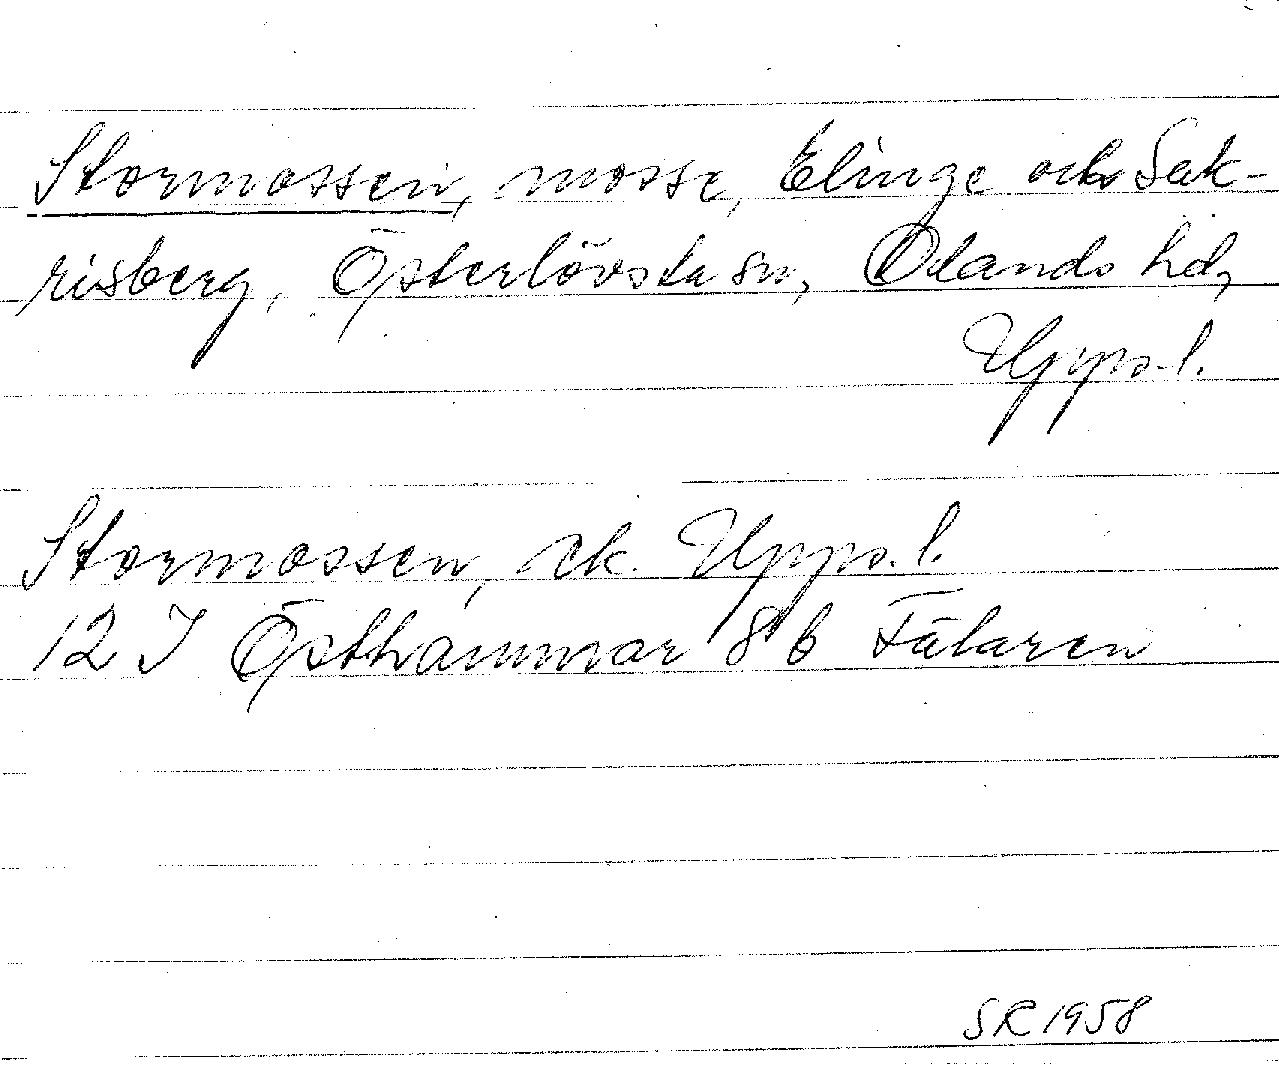 Stormossen, mosse, Elinge och Sak-
risberg, Österlövsta sn, Olands hd,
Upps. l.
Stormossen, ek. Upps. l.
12 I Östhammar 8 b Fälaren
SR 1958